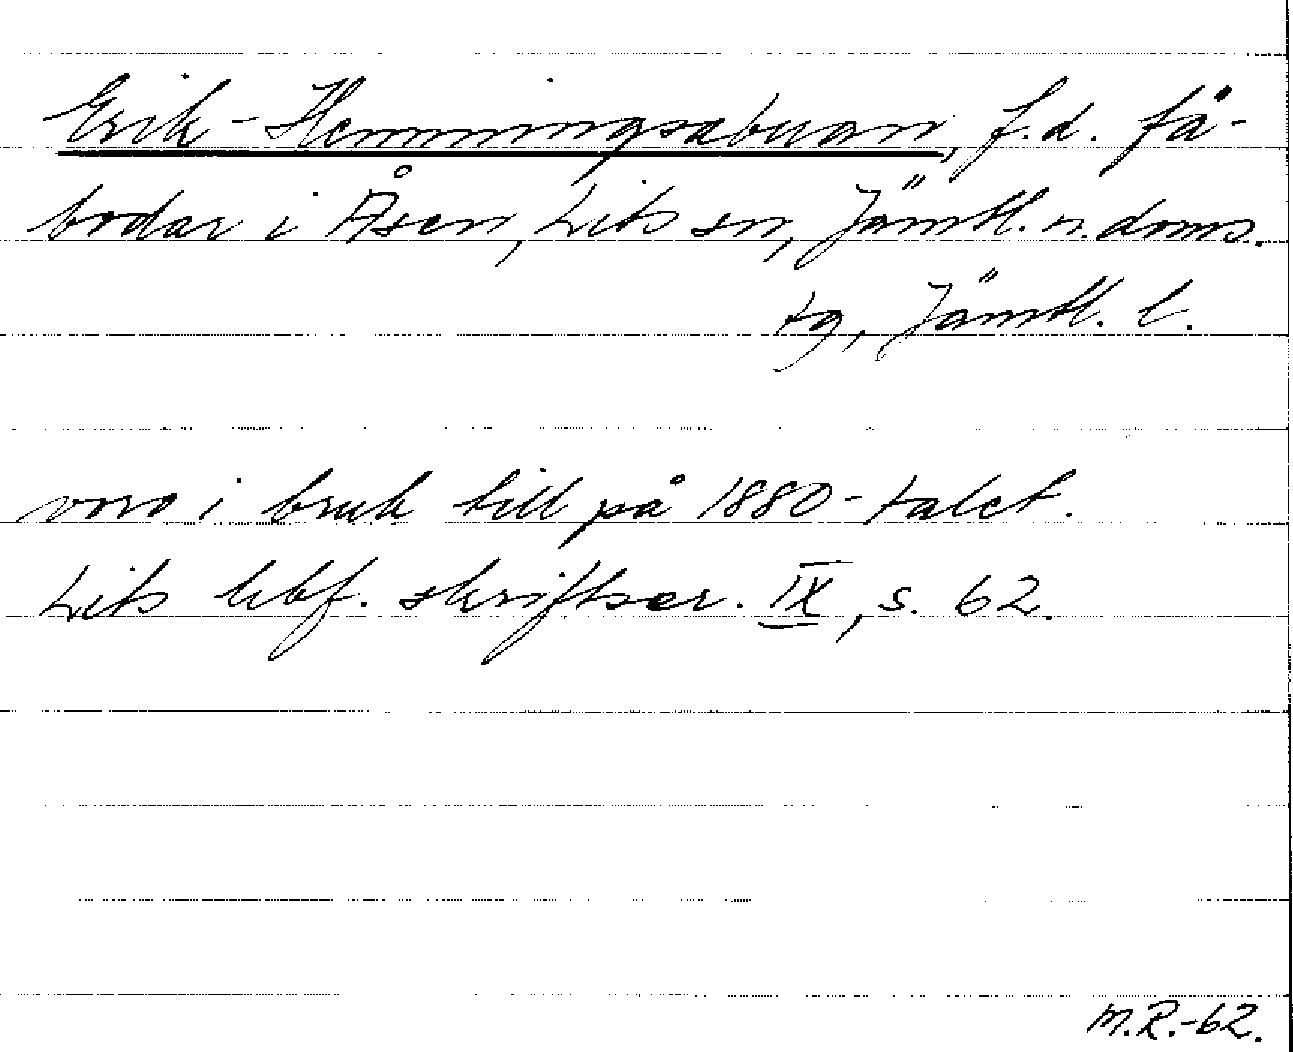 Erik-Hemmingsabuan, f.d. fä-
bodar i Åsen, Lits sn, Jämtl. n. doms.
tg, Jämtl. l.
voro i bruk till på 1880-talet.
Lits hbf. skriftser. IX, s. 62.
M.R.-62.